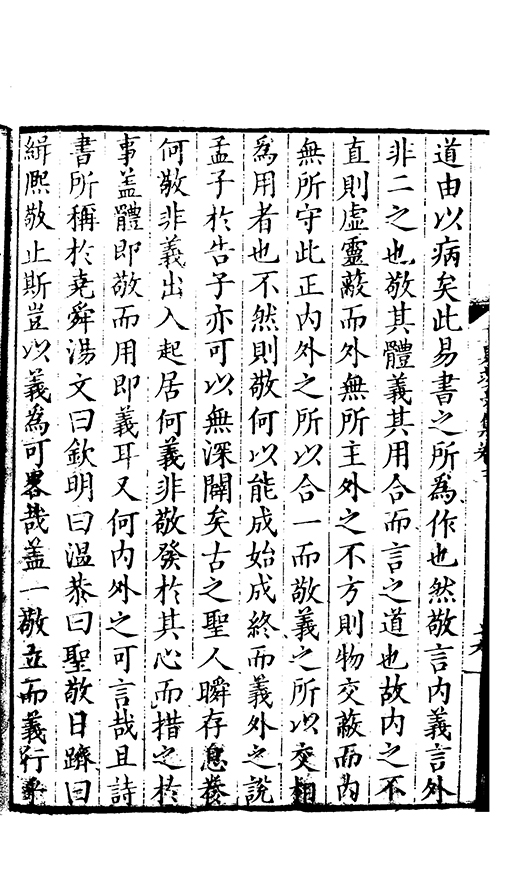 道由以病矣此易書之所為作也然敬言內義言外
非二之也敬其體義其用合而言之道也故內之不
直則虛靈蔽而外無所主外之不方則物交蔽而內
無所守此正內外之所以合一而敬義之所以交相
為用者也不然則敬何以能成始成終而義外之說
孟子於告子亦可以無深闢矣古之聖人瞬存息養
何敬非義出入起居何義非敬發於其心而措之於
事盖體即敬而用即義耳又何內外之可言哉且詩
書所稱於堯舜湯文曰欽明曰溫恭曰聖敬日躋曰
緝熈敬止斯豈以義為可畧哉盖一敬立而義行乎